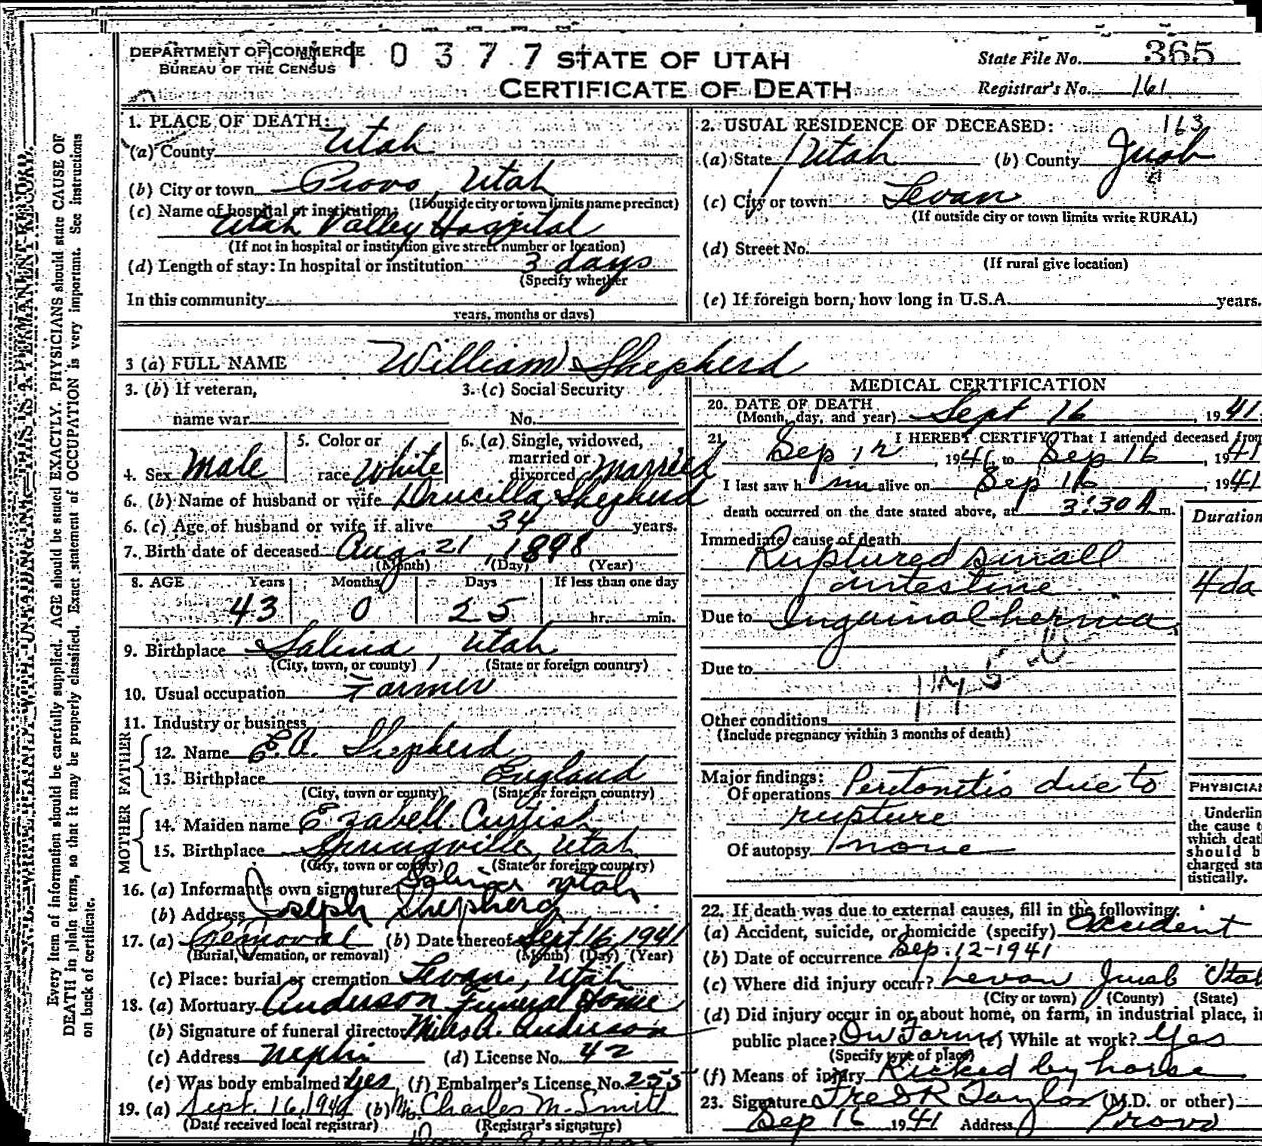 DEPARTMENT OF COMMERCE
BUREAU OF THE CENSUS
110377
STATE OF UTAH
CERTIFICATE OF DEATH
State File No. 365
Registrar's No. 161
1. PLACE OF DEATH:
(a) County Utah
(b) City or town Provo, Utah
(If outside city or town limits name precinct)
(c) Name of hospital or institution:
Utah Valley Hospital
(If not in hospital or institution give street number or location)
(d) Length of stay: In hospital or institution 3 days
(Specify whether
In this community
years, months or days)
2. USUAL RESIDENCE OF DECEASED: 163
(a) State Utah (b) County Juab
(c) City or town Levan
(If outside city or town limits write RURAL)
(d) Street No.
(If rural give location)
(e) If foreign born, how long in U.S.A. years.
3 (a) FULL NAME William Shepherd
3. (b) If veteran, name war
3. (c) Social Security No.
4. Sex Male
5. Color or race White
6. (a) Single, widowed, married or divorced Married
6. (b) Name of husband or wife Drucilla Shepherd
6. (c) Age of husband or wife if alive 34 years.
7. Birth date of deceased Aug. 21, 1898
(Month) (Day) (Year)
8. AGE Years Months Days If less than one day
43 0 25 hr. min.
9. Birthplace Salina, Utah
(City, town, or county) (State or foreign country)
10. Usual occupation Farmer
11. Industry or business
FATHER
12. Name E.A. Shepherd
13. Birthplace England
(City, town or county) (State or foreign country)
MOTHER
14. Maiden name Ezabell Curtish
15. Birthplace Springville, Utah
(City, town or county) (State or foreign country)
16. (a) Informant's own signature Salina Utah
(b) Address Joseph Shepherd
17. (a) Removal (b) Date thereof Sept 16, 1941
(Burial, cremation, or removal) (Month) (Day) (Year)
(c) Place: burial or cremation Levan, Utah
18. (a) Mortuary Anderson Funeral Home
(b) Signature of funeral director Miles A. Anderson
(c) Address Nephi (d) License No. 42
(e) Was body embalmed Yes (f) Embalmer's License No. 255
19. (a) Sept. 16, 1941 (b) Charles M. Smith
(Date received local registrar) (Registrar's signature)
MEDICAL CERTIFICATION
20. DATE OF DEATH
(Month, day, and year) Sept 16, 1941
21. I HEREBY CERTIFY, That I attended deceased from
Sep 12, 1941 to Sep 16, 1941
I last saw him alive on Sep 16, 1941
death occurred on the date stated above, at 3:30 A m.
Duration
Immediate cause of death
Ruptured small
intestine 4 da
Due to Inguinal hernia
Due to
Other conditions
(Include pregnancy within 3 months of death)
Major findings:
Of operations Peritonitis due to
rupture
Of autopsy none
PHYSICIAN
Underlin
the cause t
which deat
should b
charged sta
tistically.
22. If death was due to external causes, fill in the following:
(a) Accident, suicide, or homicide (specify) Accident
(b) Date of occurrence Sep. 12-1941
(c) Where did injury occur? Levan Juab Utah
(City or town) (County) (State)
(d) Did injury occur in or about home, on farm, in industrial place, in
public place? On Farm While at work? Yes
(Specify type of place)
(f) Means of injury Kicked by horse
23. Signature Fred R Taylor (M.D. or other)
Sep 16 1941 Address Provo
N. B.—WRITE PLAINLY, WITH UNFADING INK—THIS IS A PERMANENT RECORD.
Every item of information should be carefully supplied. AGE should be stated EXACTLY. PHYSICIANS should state CAUSE OF
DEATH in plain terms, so that it may be properly classified. Exact statement of OCCUPATION is very important. See instructions
on back of certificate.